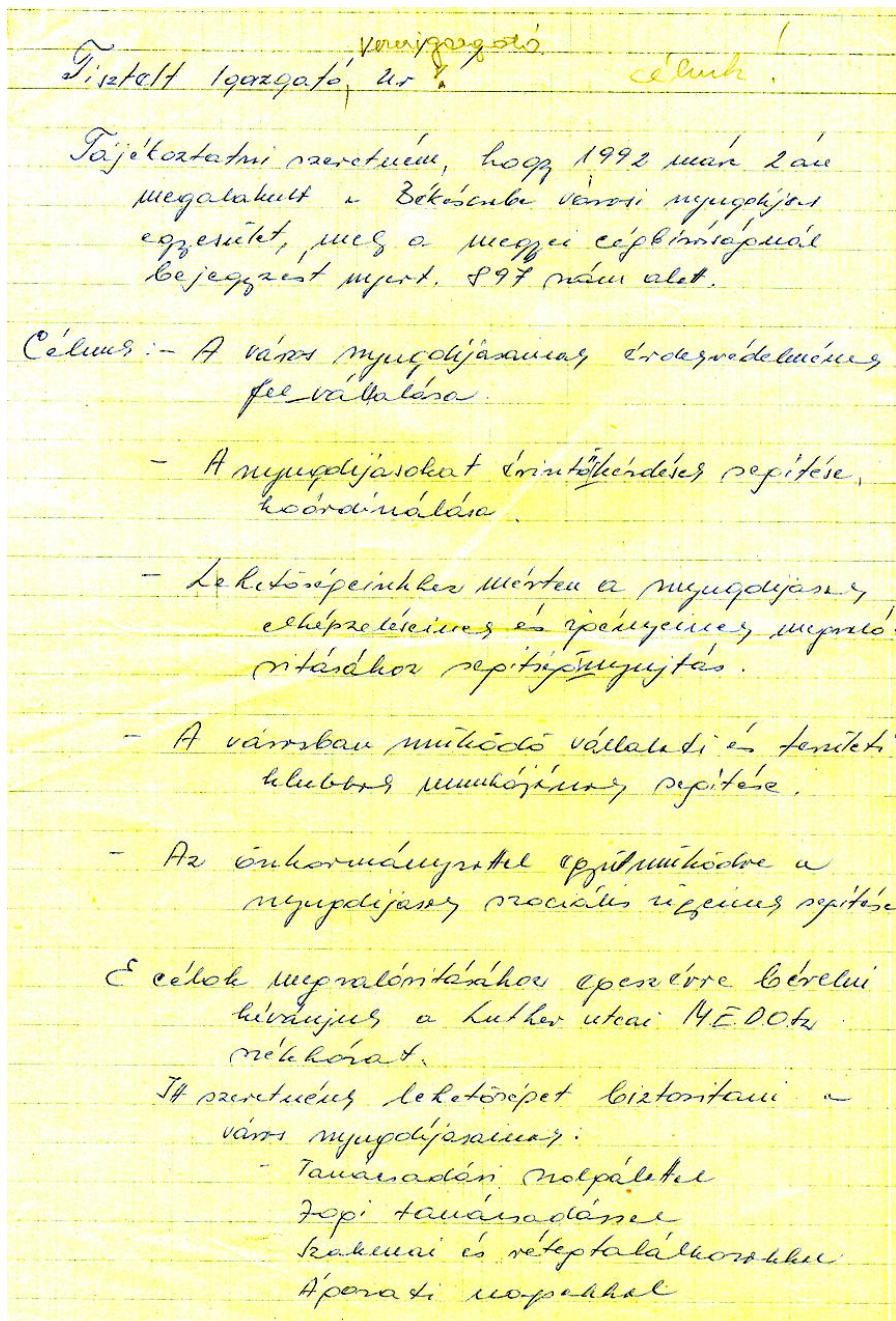 vezérigazgató
Tisztelt Igazgató Úr! célunk!
Tájékoztatni szeretném, hogy 1992 márc 2 án
megalakult a Békéscsaba városi nyugdíjas
egyesület, mely a megyei cégbíróságnál
bejegyzést nyert. 897 szám alatt.
Célunk: - A város nyugdíjasainak érdekvédelmének
fel vállalása.
- A nyugdíjasokat érintő kérdések segítése,
koórdinálása.
- Lehetőségeinkhez mérten a nyugdíjasok
elképzeléseinek és igényeinek megvaló-
sitásához segítségnyujtás.
- A városban működő vállalati és területi
klubbok munkájának segítése.
- Az önkormányzattal együtműködve a
nyugdíjasok szociális ügyeinek segítése
E célok megvalósitásához egész évre bérelni
kívánjuk a Luther utcai MEDOSz
székházat.
Itt szeretnénk lehetőséget biztositani a
város nyugdíjasainak:
- Tanácsadási szolgálattal
Jogi tanácsadással
Szakmai és rétegtalálkozokkal
Ágazati napokkal